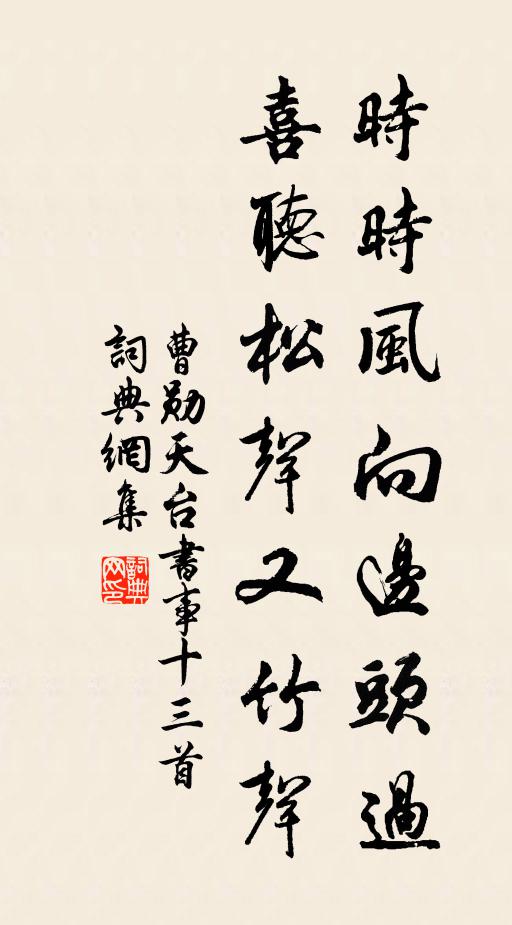 時時風向邊頭過
喜聽松聲又竹聲
曹勛天台書事十三首
詞典網集
詞典网印